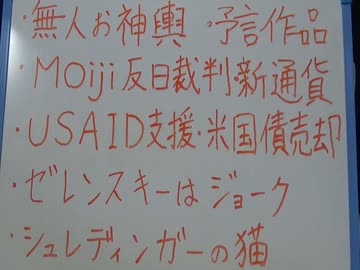 ・無人お神輿・予言作品
・Moiji反日裁判・新通貨
・USAID支援・米国債売却
・ゼレンスキーはジョーク
・シュレディンガーの猫